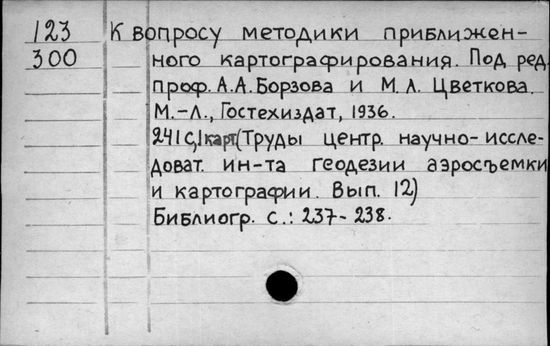 123 К вопросу методики приближен-
300 ного картографирования. Под ред.
проф. А.А. Борзова и М.Л. Цветкова.
М.-Л., Гостехиздат, 1936.
241 с, 1 карт. (Труды центр. научно-иссле-
доват. ин-та геодезии аэросъемки
и картографии. Вып. 12)
Библиогр. с.: 237-238.